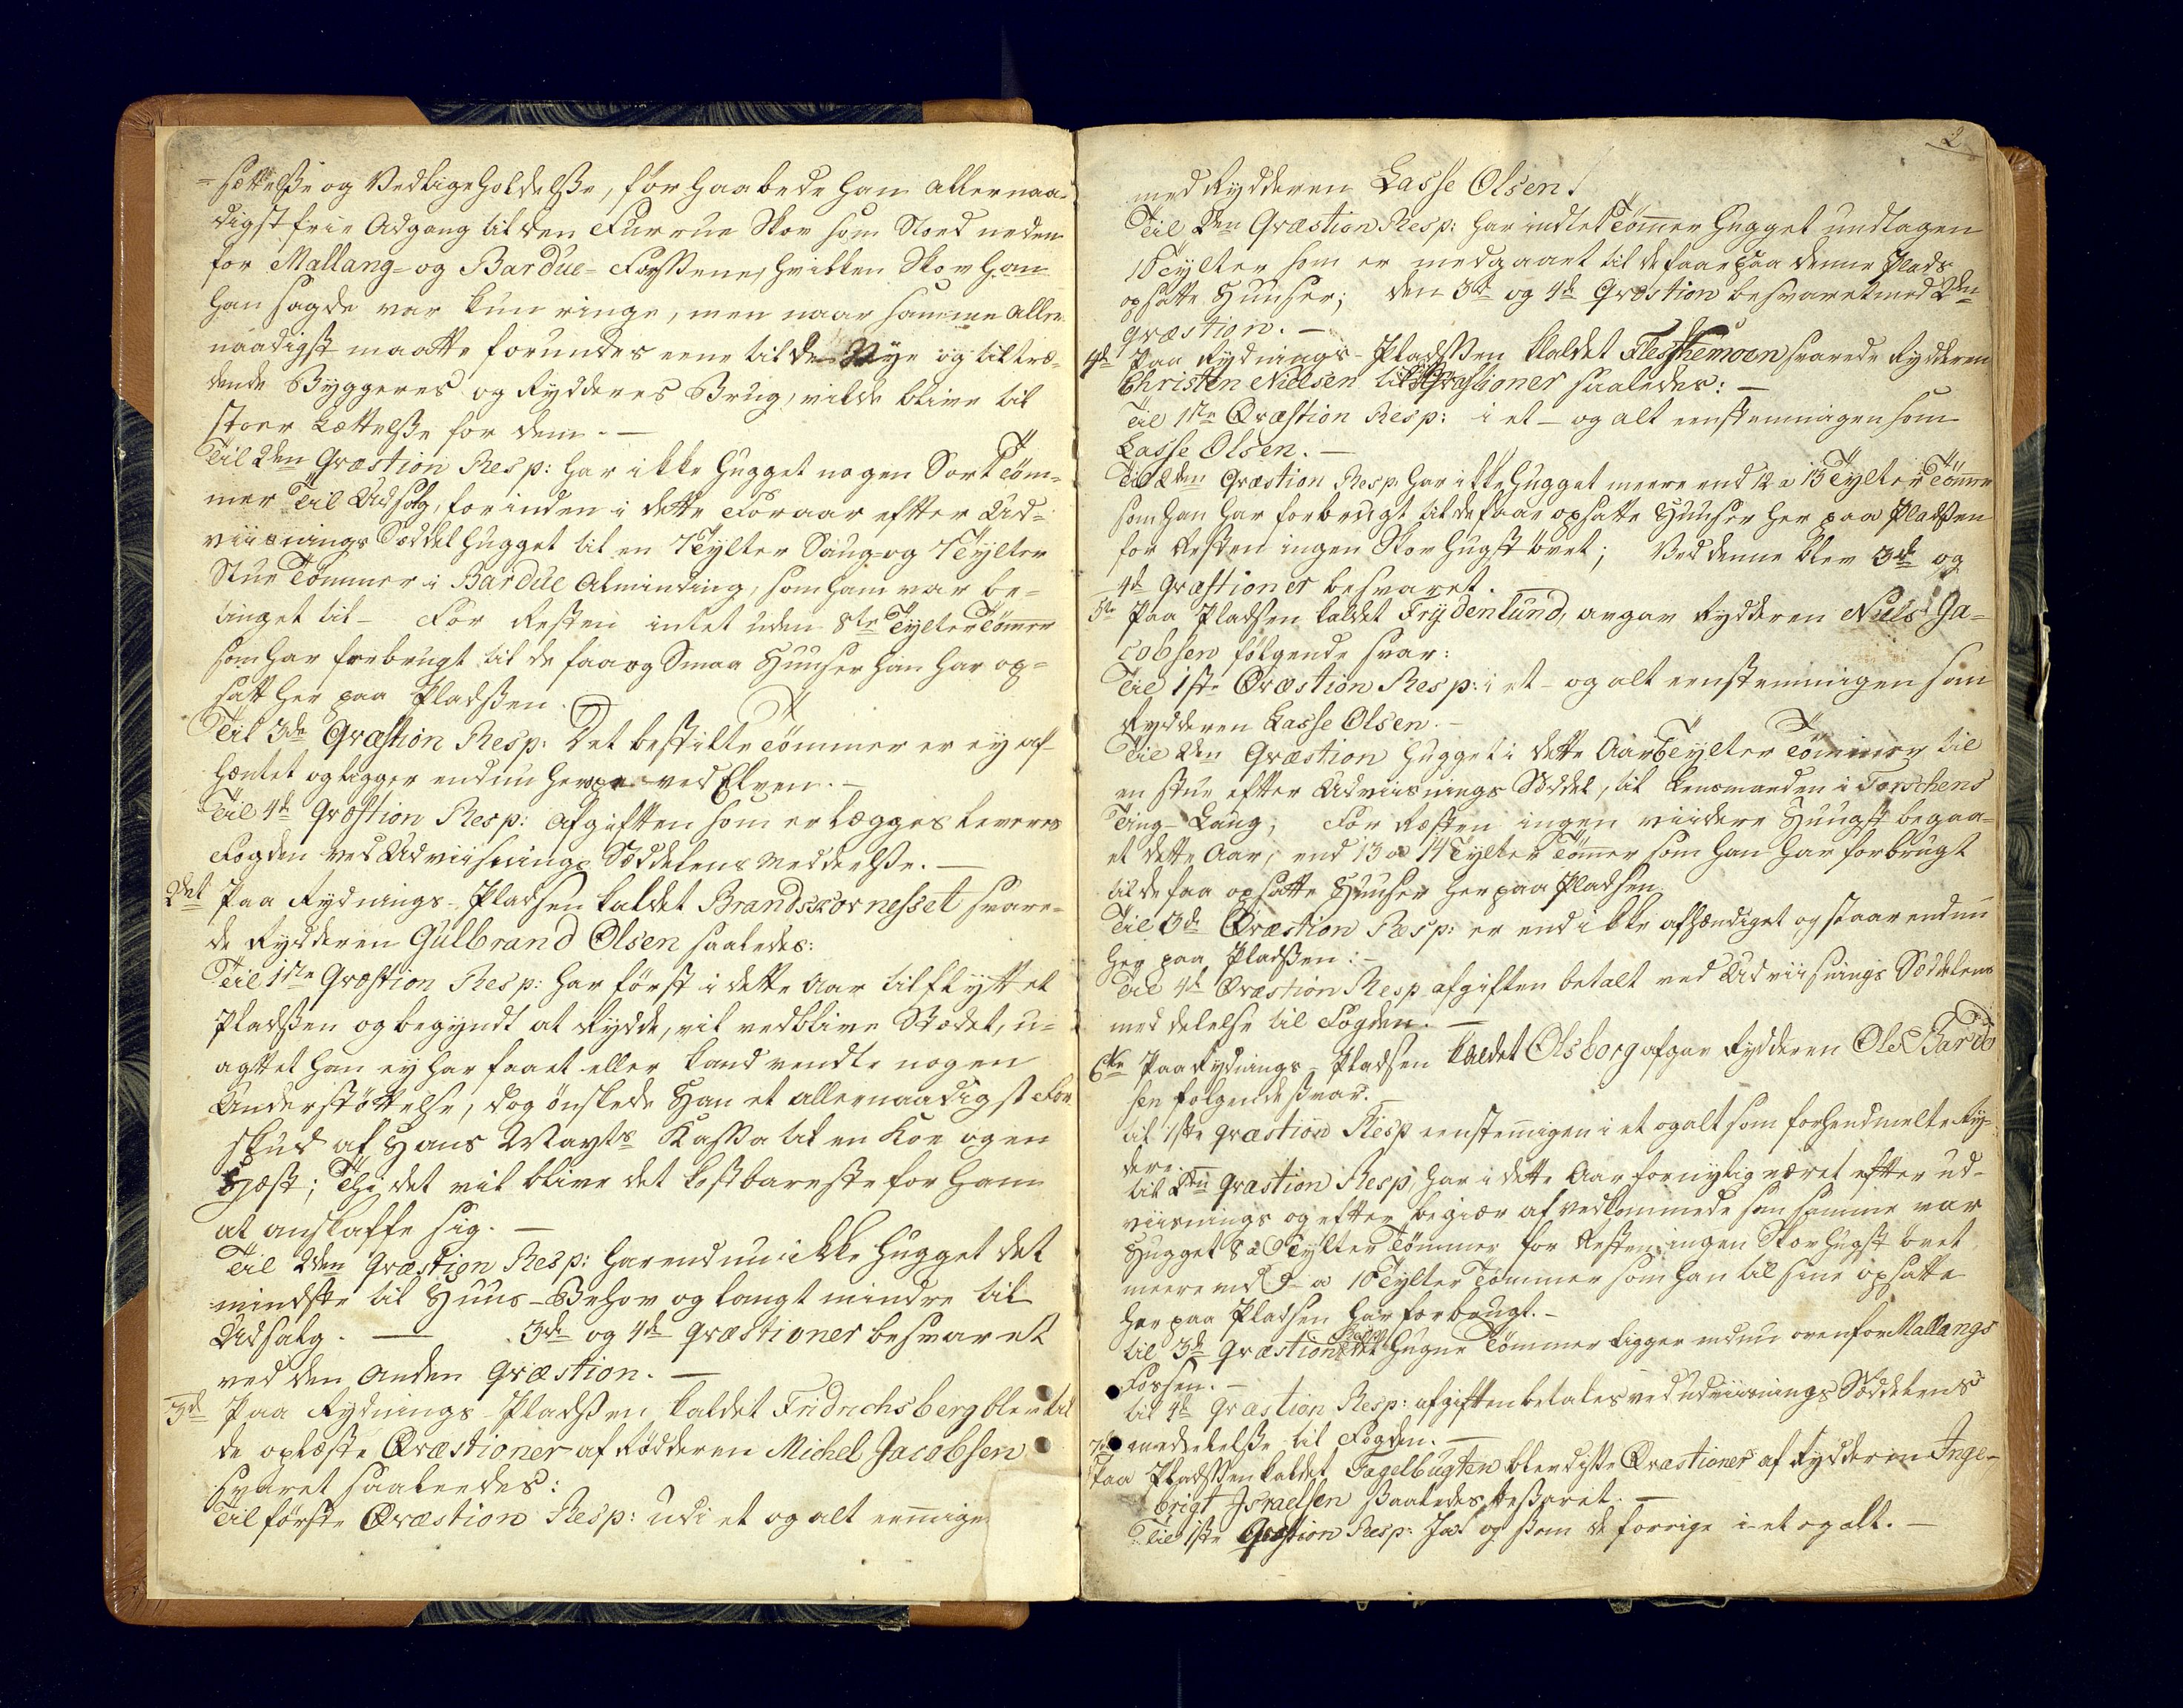 =sættelse og Vedligeholdelse, forhaabede han allernaa-
digst frie Adgang til den Furrue Skov som Stoed neden
for Mallang- og Bardue-Fossene, hvilken Skov han
han sagde var kun ringe, men naar samme aller-
naadigst maatte forundes eene til de Nye og tiltræ-
dende Byggeres og Rydderes Brug, vilde blive til
stoer Lættelse for dem. —
Til 2den Qvæstion Resp: har ikke hugget nogen Sort Töm-
mer Til Udsalg, forinden i dette Foraar efter Ud-
viisnings Sæddel hugget til en Tylter Saug- og Tylter
Stue Tömmer i Bardue Alminding, som ham var be-
tinget til — For Resten intet uden 8te Tylter Tömer
som har forbrugt til de faa og Smaa Huuser han har op-
satt her paa Pladsen.
Til 3de Qvæstion Resp: Det bestilte Tömmer er ey af-
hentet og ligger endnu her ved Elven. —
Til 4de Qvæstion Resp: Afgiften som erlægges leveres
Fogden ved Udviisnings Sæddelens Meddeelse. —
2det Paa Rydnings-Pladsen kaldet Brandskornesset svare-
de Rydderen Gulbrand Olsen saaledes:
Til 1ste Qvæstion Resp: har først i dette Aar tilflyttet
Pladsen og begyndt at Rydde, vil vedblive Stedet, u-
agttet han ey har faaet eller kand vendte nogen
Understöttelse, dog önskede Han et allernaadigst For
skud af Hans Mayts Kassa til en Koe og en
Hæst; Thi det vil blive det kostbareste for ham
at anskaffe sig. —
Til 2den Qvæstion Resp: har endnu ikke hugget det
mindste til Huus-Behov og langt mindre til
Udsalg. — 3de og 4de Qvæstioner besvaret
ved den Anden Qvæstion. —
3de Paa Rydnings-Pladsen kaldet Fridrichsberg blev til
de oplæste Qvæstioner af Rödderen Michel Jacobsen
svaret saaleedes:
Til første Qvæstion Resp: udi et og alt eenige
2
med Rydderen Lasse Olsen.
Til 2den Qvæstion Resp: har indtet Tömer hugget undtagen
10 Tylter som er medgaaet til de faae paa denne Plads
opsatte Huuser; den 3de og 4de Qvæstion besvaret med 2den
Qvæstion. —
4de Paa Rydnings-Pladsen kaldet Fleskemoen svarede Rydderen
Christen Nielsen til Qvæstioner saaledes: —
Til 1ste Qvæstion Resp: i et- og alt eenstemmigen som
Lasse Olsen. —
Til 2den Qvæstion Resp har ikke hugget meere end 12 a 13 Tylter Tömer
som han har forbrugt til de faae opsatte Huuser her paa Pladsen
for Resten ingen Skovhugst övet; Ved denne blev 3de og
4de Qvæstioner besvaret.
5te Paa Pladsen kaldet Frydenlund, avgav Rydderen Niels Ja-
cobsen følgende svar:
Til 1ste Qvæstion Resp: i et- og alt eenstemmigen som
Rydderen Lasse Olsen. —
Til 2den Qvæstion hugget i dette Aar Tylter Tömmer til
en stue efter Udviisnings Sæddel, til Lensmanden i Torschens
Ting-Laug; For Resten ingen viidere Huugst begaa-
et dette Aar, end 13 a 14 Tylter Tömer som han har forbrugt
til de faa opsatte Huuser her paa Pladsen.
Til 3de Qvæstion Resp: er end ikke afhændiget og staar endnu
her paa Pladsen: —
Til 4de Qvæstion Resp afgiften betalt ved Udviisnings Sæddelens
meddelelse til Fogden. —
6te Paa Rydnings-Pladsen kaldet Olsborg afgav Rydderen Ole Bardo
sen følgende svar.
til 1ste Qvæstion Resp eenstemigen i et og alt som forhendmelte Ry-
dere.
til 2den Qvæstion Resp, har i dette Aar fornylig været efter ud-
viisnings og efter begiær af vedkommede som samme var
Hugget 8 a Tylter Tömmer for Resten ingen Skovhugst övet
meere end 9 a 10 Tylter Tömmer som han til sine opsatte
her paa Pladsen har forbrugt. —
til 3de Qvæstion Resp det hugne Tömmer ligger endnu ovenfor Mallangs
Fossen. —
til 4de Qvæstion Resp: afgiften betales ved udviisnings Sæddelens
meddelelse til Fogden. —
7de Paa Pladsen kaldet Fagelbugten blev disse Qvæstioner af Rydderen Inge-
brigt Israelsen saaledes besvaret. —
Til 1ste Qvæstion Resp: Jal og som de forrige i et og alt. —